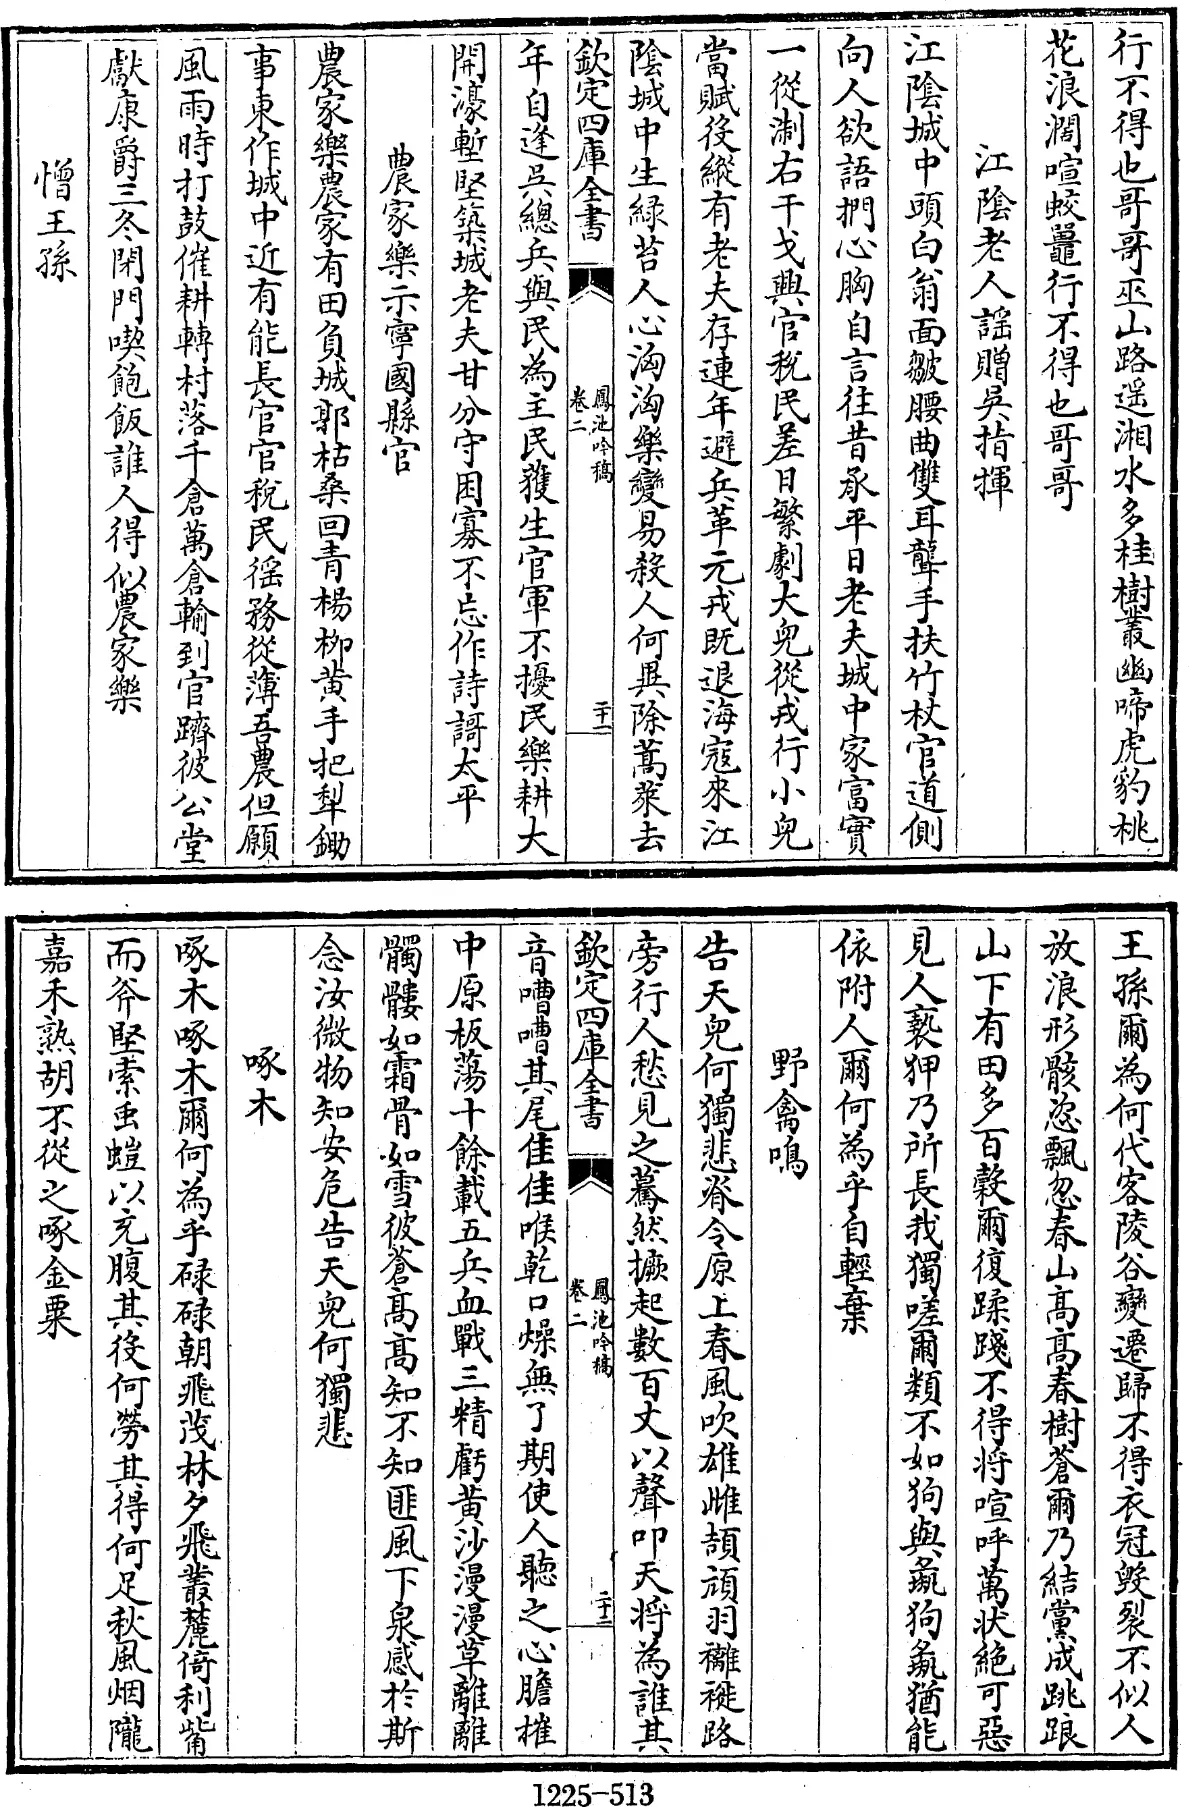 行不得也哥哥巫山路遥湘水多桂樹叢幽啼虎豹桃
花浪濶喧蛟鼉行不得也哥哥
江陰老人謡贈吳指揮
江陰城中頭白翁面皺腰曲雙耳聾手扶竹杖官道側
向人欲語捫心胸自言往昔承平日老夫城中家富實
一從淛右干戈興官稅民差日繁劇大兒從戎行小兒
當賦役縱有老夫存連年避兵革元戎既退海寇來江
陰城中生緑苔人心洶洶樂變易殺人何異除蒿萊去
欽定四庫全書
鳳池吟稿
卷二
二十一
年自逢吳總兵與民為主民獲生官軍不擾民樂耕大
開濠塹堅築城老夫甘分守困寡不忘作詩謌太平
農家樂示寧國縣官
農家樂農家有田負城郭枯桑回青楊柳黄手把犁鋤
事東作城中近有能長官官稅民徭務從薄吾農但願
風雨時打鼓催耕轉村落千倉萬倉輸到官躋彼公堂
獻康爵三冬閉門喫飽飯誰人得似農家樂
憎王孫
王孫爾為何代客陵谷變遷歸不得衣冠毁裂不似人
放浪形骸恣飄忽春山高高春樹蒼爾乃結黨成跳踉
山下有田多百穀爾復蹂踐不得將喧呼萬狀絶可惡
見人褻狎乃所長我獨嗟爾類不如狗與彘狗彘猶能
依附人爾何為乎自輕棄
野禽鳴
告天兒何獨悲脊令原上春風吹雄雌頡頏羽褷路
旁行人愁見之驀然撅起數百丈以聲叩天將為誰其
欽定四庫全書
鳳池吟稿
卷二
二十二
音嘈嘈其尾隹隹喉乾口燥無了期使人聽之心膽摧
中原板蕩十餘載五兵血戰三精虧黄沙漫漫草離離
髑髏如霜骨如雪彼蒼高高知不知匪風下泉感於斯
念汝微物知安危告天兒何獨悲
啄木
啄木啄木爾何為乎碌碌朝飛茂林夕飛叢麓倚利觜
而斧堅索虫螘以充腹其役何勞其得何足秋風烟隴
嘉禾熟胡不從之啄金粟
1225-513